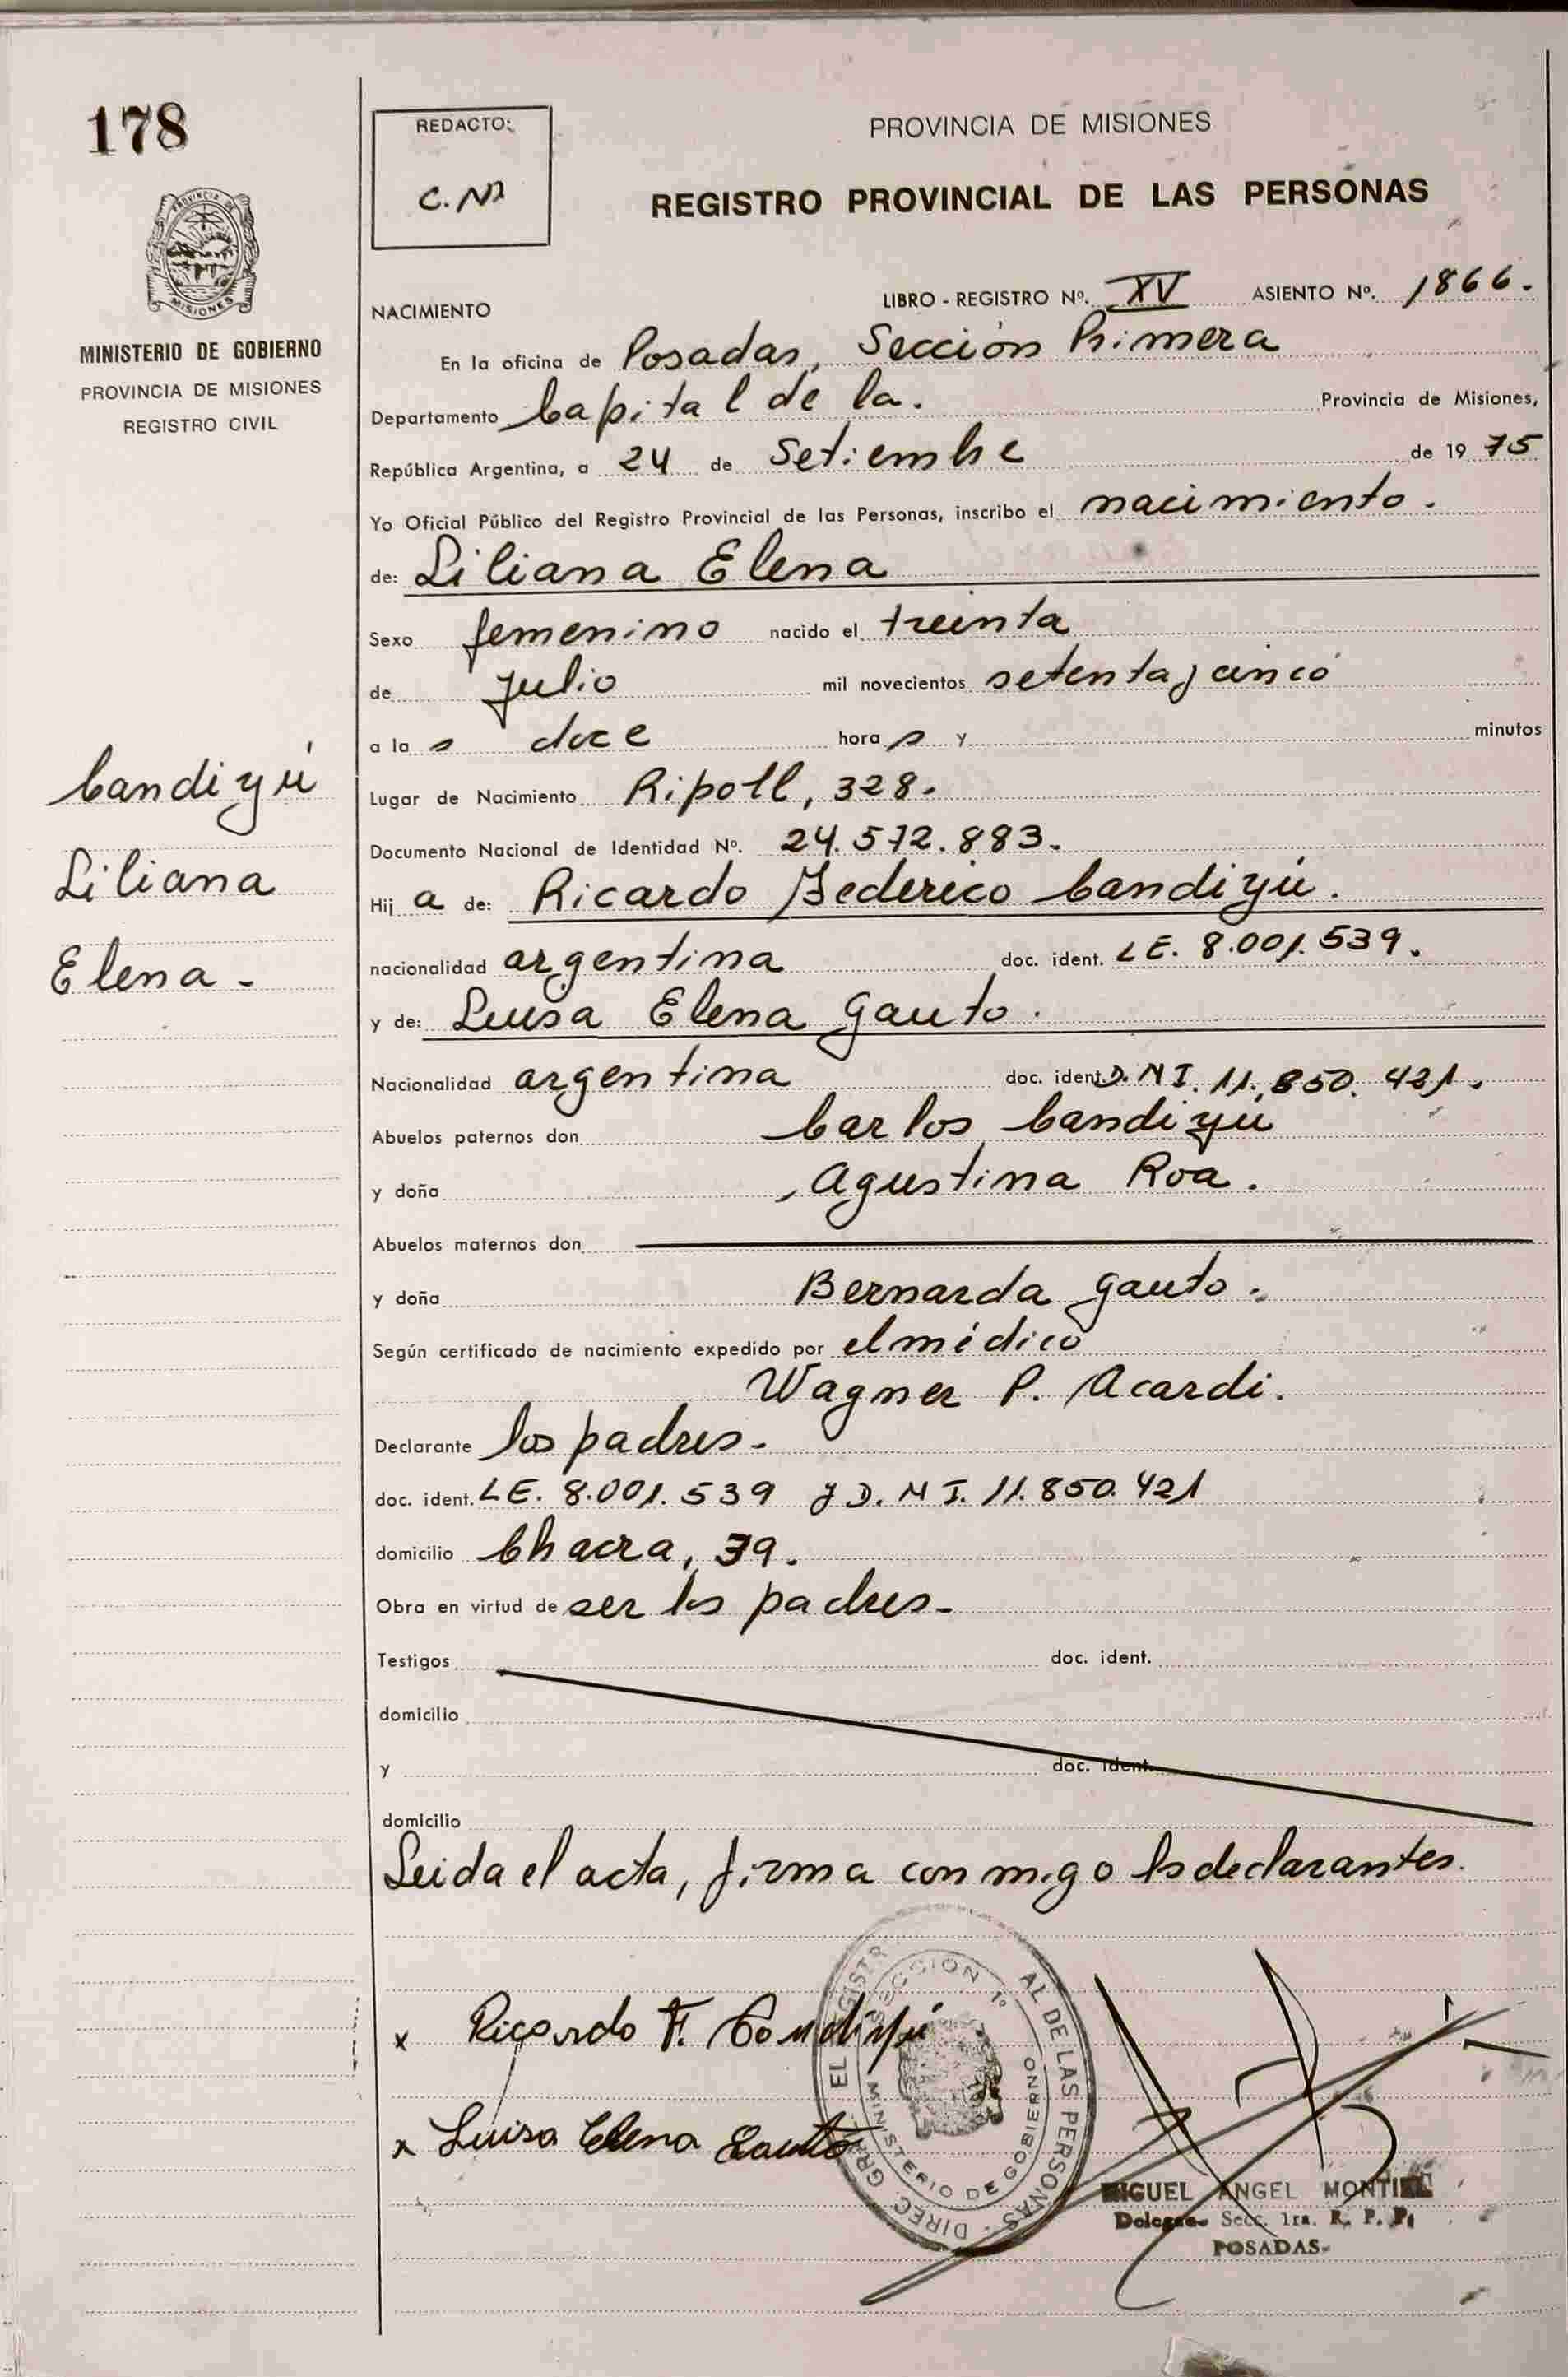 178
PROVINCIA DE MISIONES
MINISTERIO DE GOBIERNO
PROVINCIA DE MISIONES
REGISTRO CIVIL
Candiyú
Liliana
Elena -
REDACTO:
C.N
PROVINCIA DE MISIONES
REGISTRO PROVINCIAL DE LAS PERSONAS
LIBRO - REGISTRO Nº. XV ASIENTO Nº. 1866.
NACIMIENTO
En la oficina de Posadas, Sección Primera
Departamento Capital de la. Provincia de Misiones,
República Argentina, a 24 de Setiembre de 19 75
Yo Oficial Público del Registro Provincial de las Personas, inscribo el nacimiento.
de: Liliana Elena
Sexo femenino nacido el treinta
de julio mil novecientos setenta y cinco
a la s doce hora s y minutos
Lugar de Nacimiento Ripoll, 328.
Documento Nacional de Identidad Nº. 24.572.883.
Hij a de: Ricardo Federico Candiyú.
nacionalidad argentina doc. ident. LE. 8.001.539.
y de: Luisa Elena Gauto.
Nacionalidad argentina doc. ident. D.N I. 11.850.421.
Abuelos paternos don Carlos Candiyú
y doña Agustina Roa.
Abuelos maternos don
y doña Bernarda Gauto.
Según certificado de nacimiento expedido por el médico
Wagner P. Acardi.
Declarante los padres-
doc. ident. LE. 8.001.539 y D.N I. 11.850.421
domicilio Chacra, 39.
Obra en virtud de ser los padres-
Testigos doc. ident.
domicilio
y doc. ident.
domicilio
Leida el acta, firma conmigo los declarantes.
x Ricardo F. Candiyú
x Luisa Elena Gauto
SECCION 1º
MINISTERIO DE GOBIERNO
AL DE LAS PERSONAS
MIGUEL ANGEL MONTIEL
Delegado Secc. 1ra. R. P. P.
POSADAS-